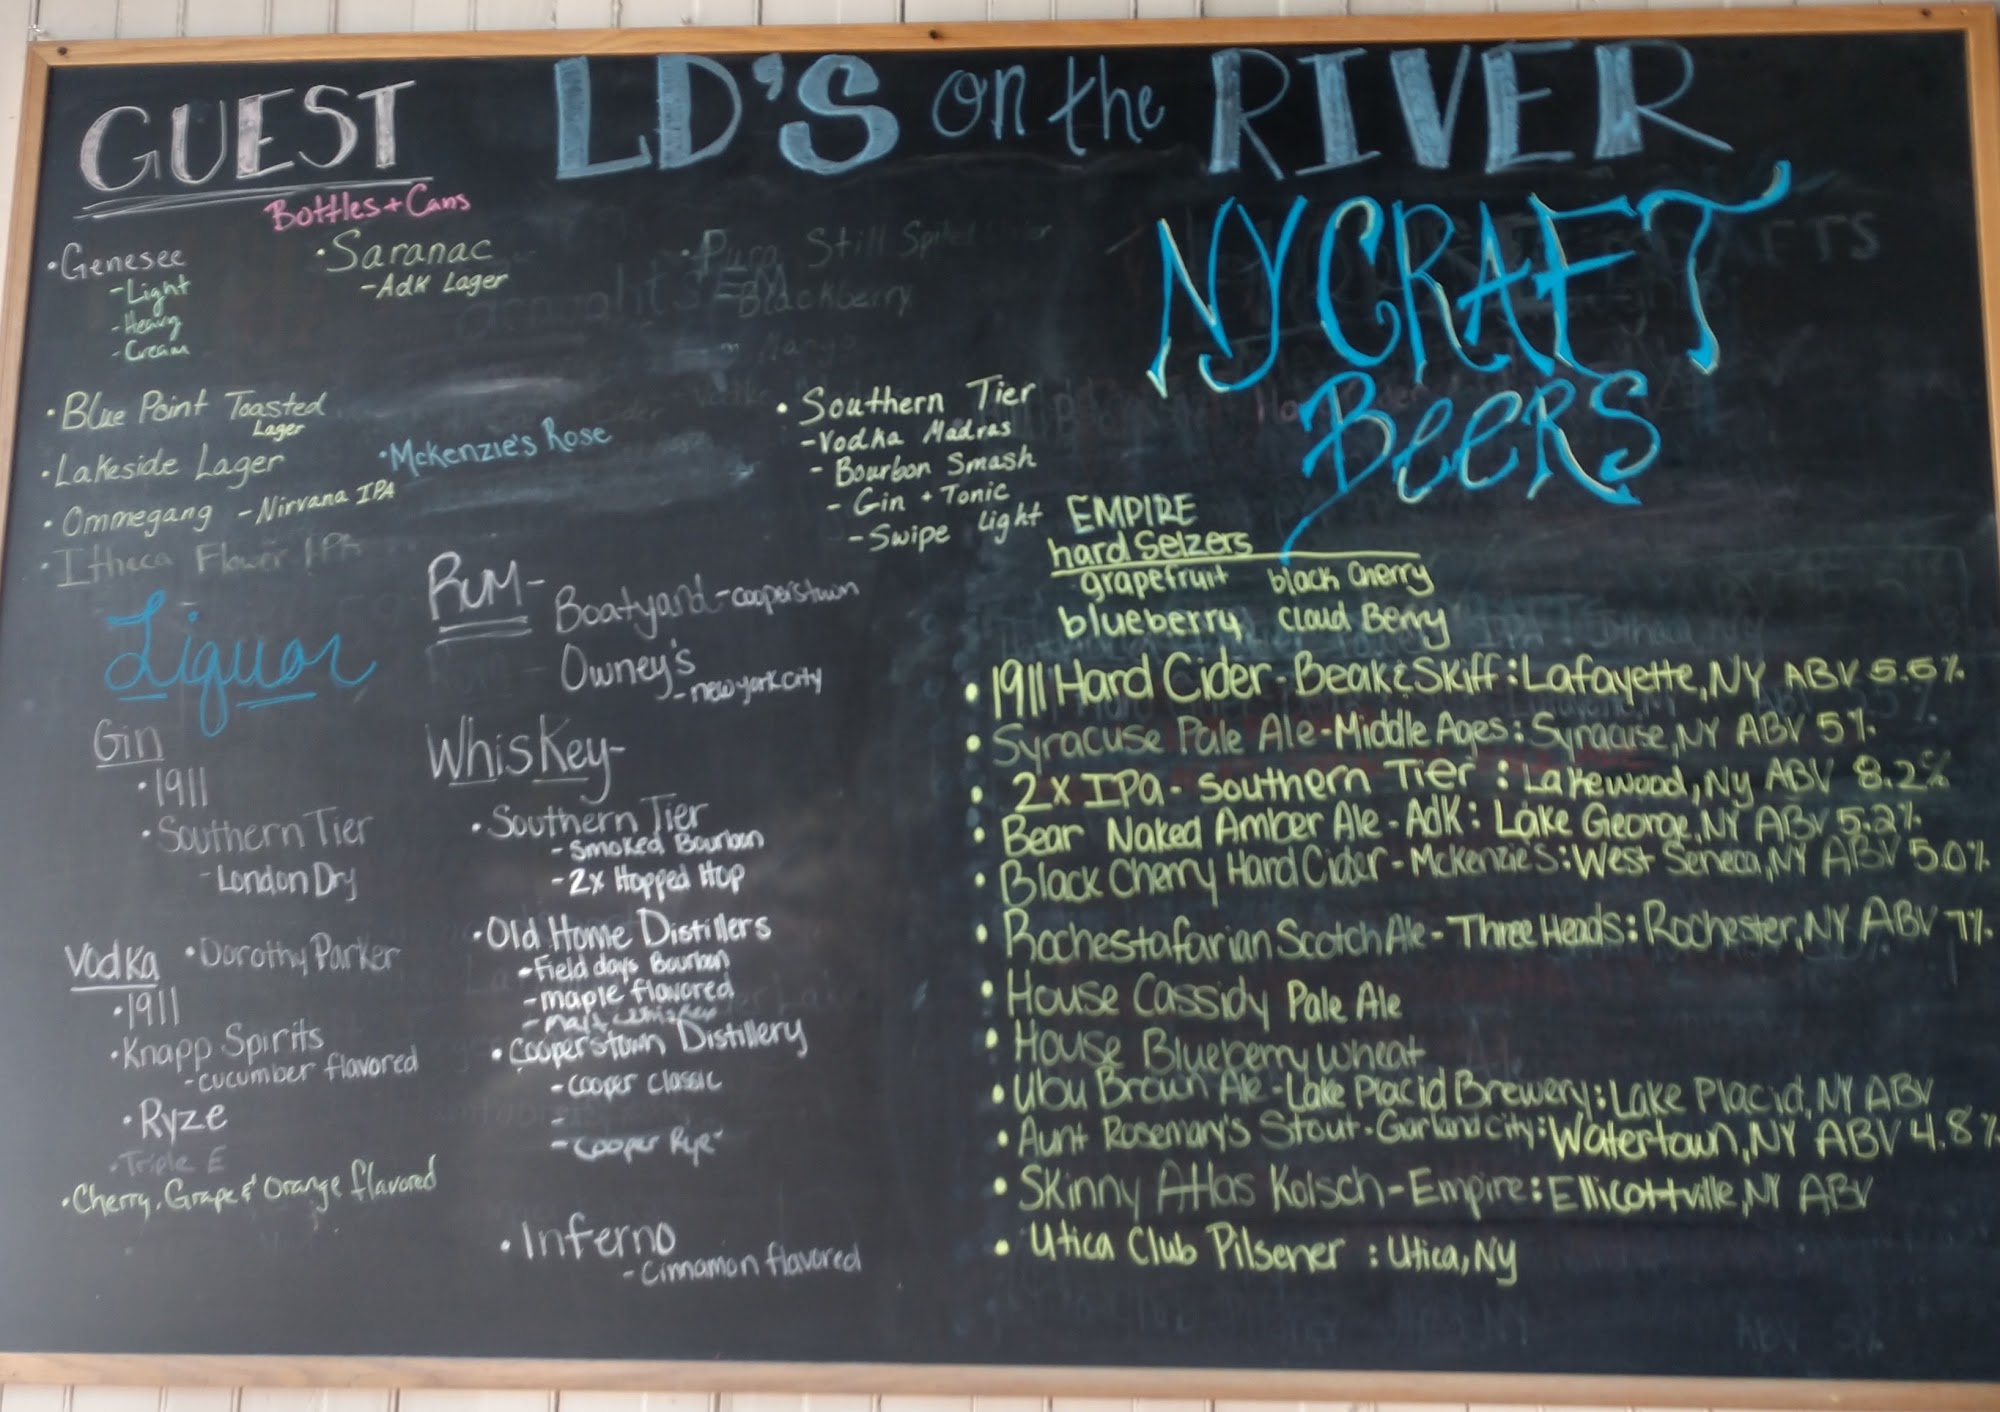 GUEST
LD'S on the RIVER
Bottles + Cans
• Genesee
- Light
- Heavy
- Cream
• Saranac
- Adk Lager
• Blue Point Toasted
Lager
• Lakeside Lager
• Mckenzie's Rose
• Ommegang - Nirvana IPA
• Ithaca Flower IPA
Blackberry
• Southern Tier
- Vodka Madras
- Bourbon Smash
- Gin + Tonic
- Swipe Light
Liquor
Gin
• 1911
• Southern Tier
- London Dry
Vodka
• Dorothy Parker
• 1911
• Knapp Spirits
- cucumber flavored
• Ryze
• Triple E
• Cherry, Grape & Orange flavored
Rum -
Boatyard - cooperstown
Owney's
- new york city
Whiskey -
• Southern Tier
- Smoked Bourbon
- 2x Hopped Hop
• Old Home Distillers
- Field days Bourbon
- maple flavored
- malt whiskey
• Cooperstown Distillery
- cooper classic
-
- cooper Rye
• Inferno
- Cinnamon flavored
NY CRAFT
BeeRS
EMPIRE
hard Selzers
grapefruit black Cherry
blueberry Cloud Berry
• 1911 Hard Cider - Beak & Skiff : Lafayette, NY ABV 5.5%
• Syracuse Pale Ale - Middle Ages : Syracuse, NY ABV 5%
• 2x IPA - Southern Tier : Lakewood, Ny ABV 8.2%
• Bear Naked Amber Ale - Adk : Lake George, NY ABV 5.2%
• Black Cherry Hard Cider - Mckenzie's : West Seneca, NY ABV 5.0%
• Rochestafarian Scotch Ale - Three Heads : Rochester, NY ABV 7%
• House Cassidy Pale Ale
• House Blueberry Wheat
• Ubu Brown Ale - Lake Placid Brewery : Lake Placid, NY ABV
• Aunt Rosemary's Stout - Garland City : Watertown, NY ABV 4.8%
• Skinny Atlas Kolsch - Empire : Ellicottville, NY ABV
• Utica Club Pilsener : Utica, NY